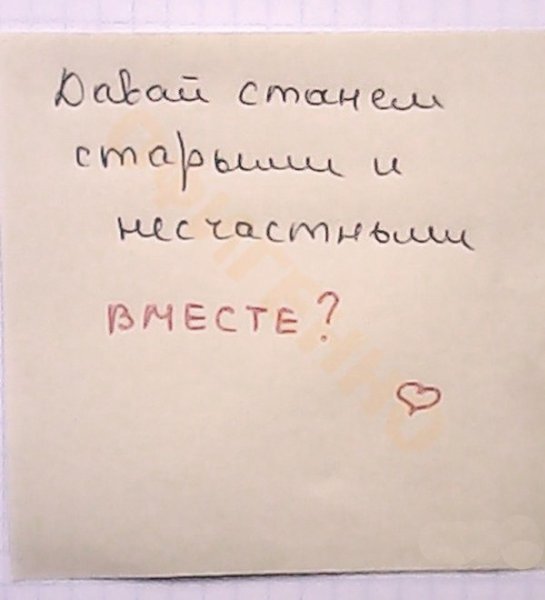 Давай станем
старыми и
несчастными
ВМЕСТЕ?